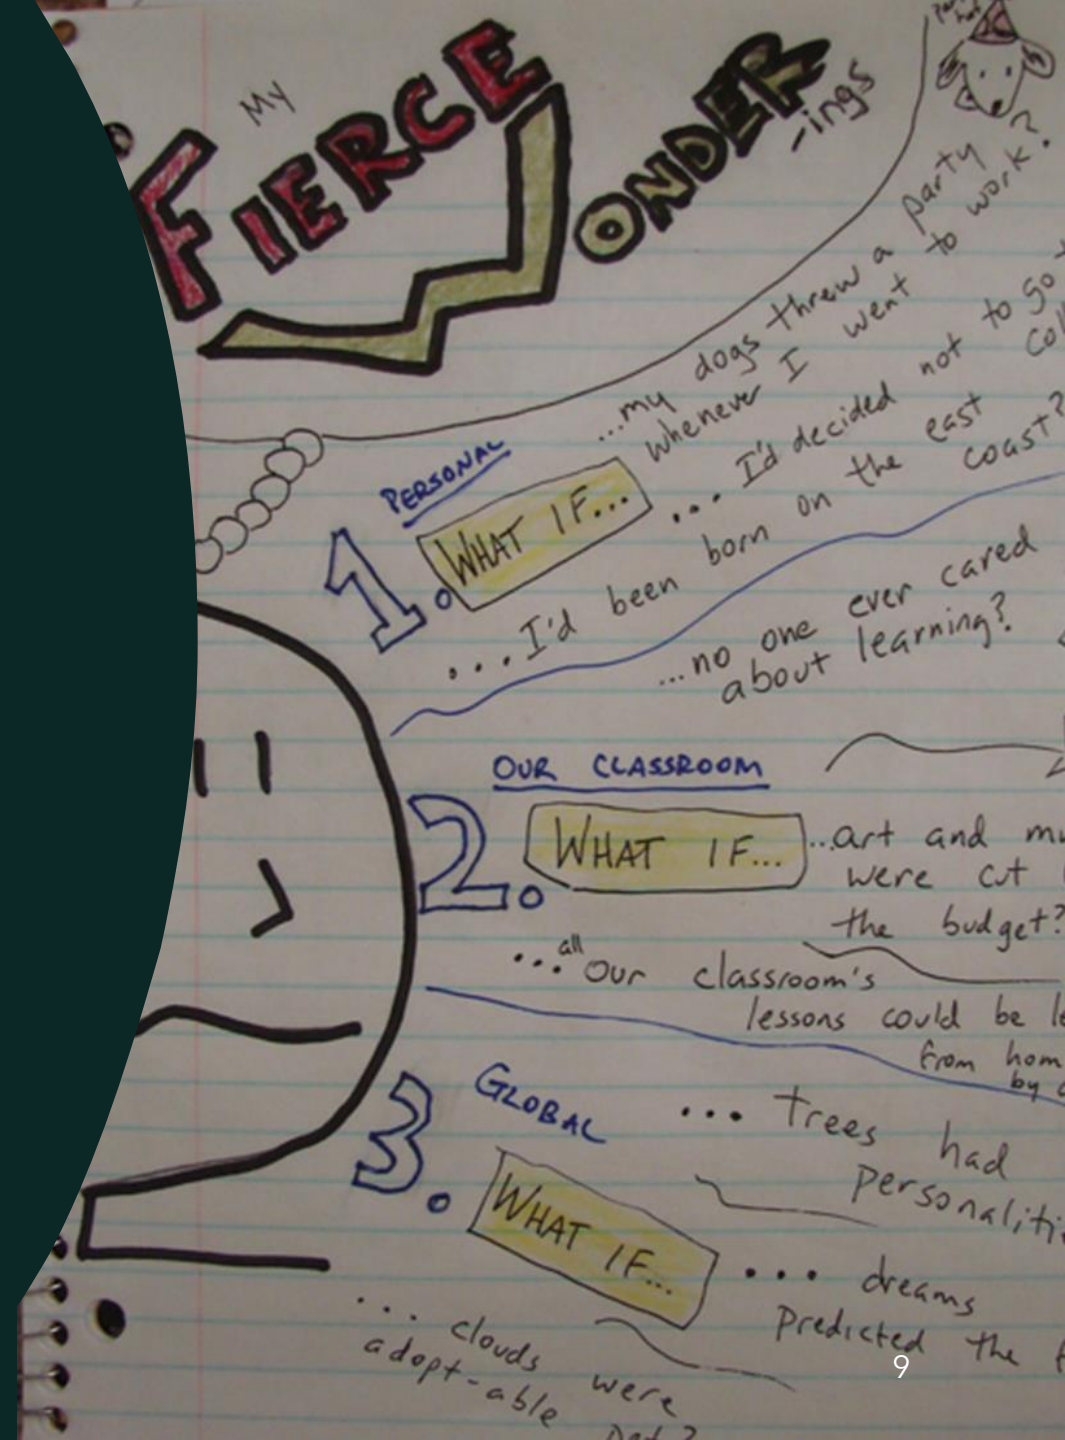 My
FIERCE
WONDER
-ings
...my dogs threw a party
whenever I went to work?
... I'd decided not to go
... I'd been born on the east
coast?
PERSONAL
1. WHAT IF...
...no one ever cared
about learning?
OUR CLASSROOM
2. WHAT IF...
...art and
were cut
the budget?
...all our classroom's
lessons could be
from
by
GLOBAL
3. WHAT IF...
... trees had
... dreams
predicted the
... clouds were
adopt-able
9